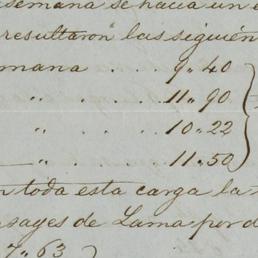 semana se hacia un e
resultaron las siguien
emana . . . 9„ 40
„ . . . 11„ 90
„ . . . 10„ 22
„ . . . 11„ 50
n toda esta carga la
sages de Lama por d
7„ 63